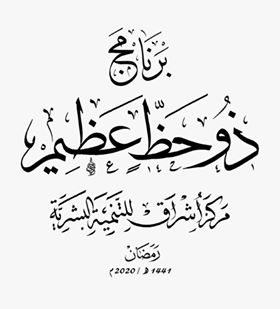 برنامج
ذُو حَظٍّ عَظِيمٍ
مركز أشراق للتنمية البشرية
رمضان
1441 هـ / 2020 م